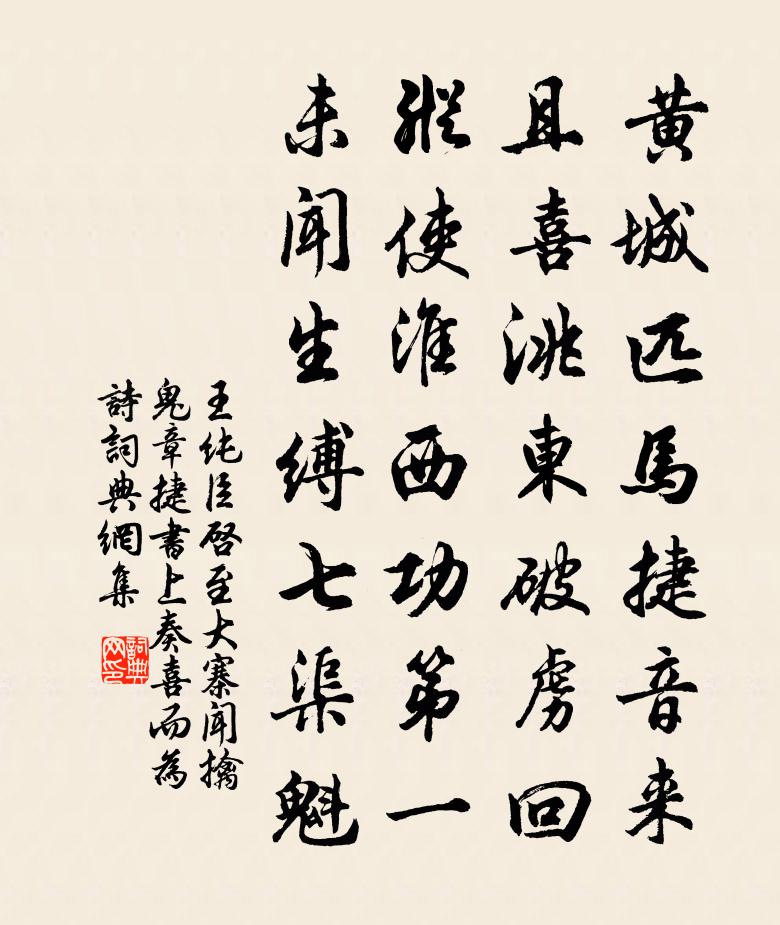 黄城匹馬捷音来
且喜洮東破虜回
縱使淮西功第一
未聞生縛七渠魁
王純臣啓至大寨聞擒
鬼章捷書上奏喜而為
詩詞典網集
詞典